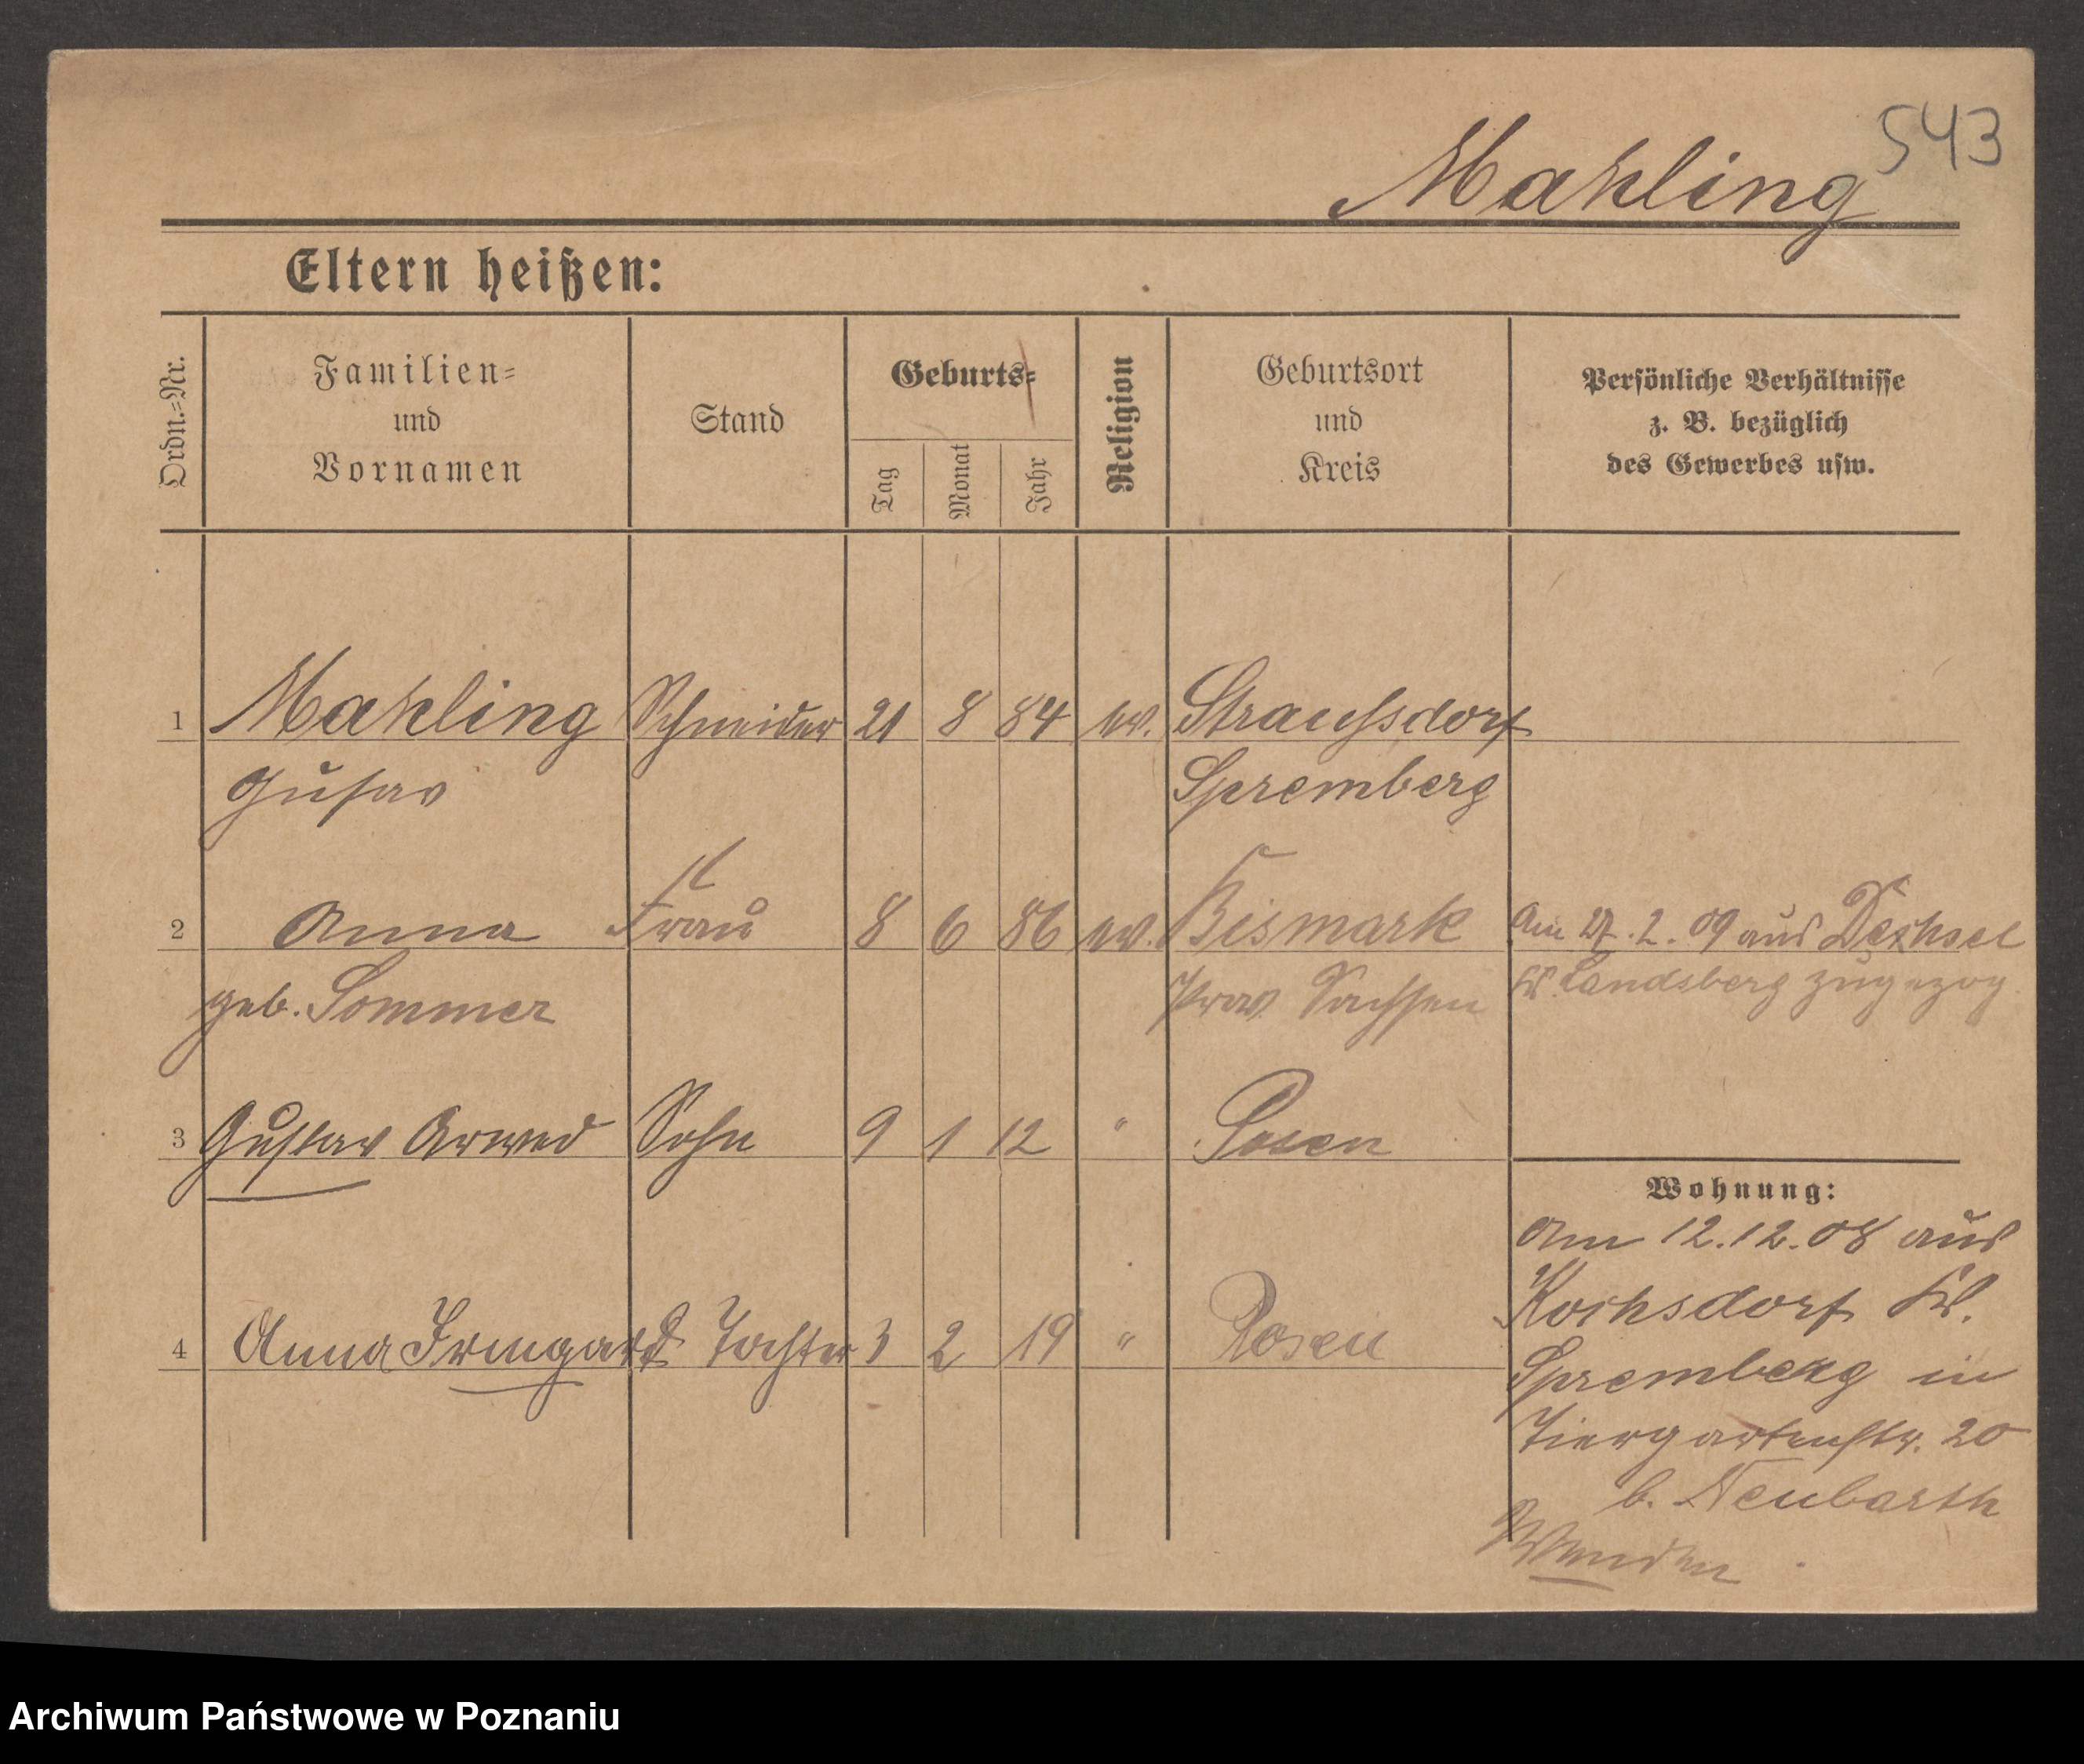 543
Mahling
Eltern heißen:
Ordn.=Nr.
Familien=
und
Vornamen
Stand
Geburts=
Tag
Monat
Jahr
Religion
Geburtsort
und
Kreis
Persönliche Verhältnisse
z. B. bezüglich
des Gewerbes usw.
1 Mahling Schneider 21 8 84 ev. Straußdorf
Gustav Spremberg
2 Anna Frau 8 6 86 ev. Bismark Am 27.2.09 aus Dechsel
geb. Sommer Prov. Sachsen Kr. Landsberg zugezog.
3 Gustav Arwed Sohn 9 1 12 " Posen
Wohnung:
Am 12.12.08 aus
Kochsdorf Kr.
4 Anna Irmgard Tochter 3 2 19 " Posen
Spremberg in
Tiergartenstr. 20
b. Neubarth
Wenden
Archiwum Państwowe w Poznaniu